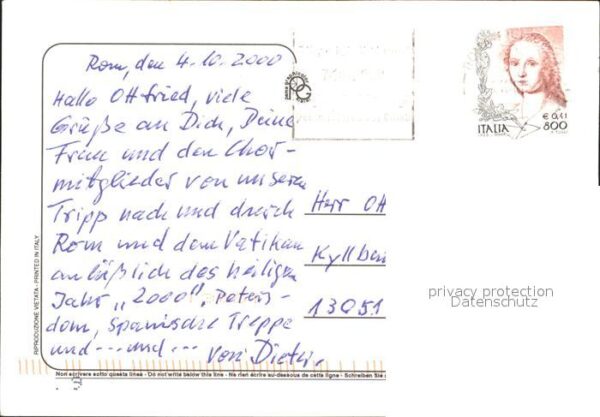 Rom, den 4.10.2000
Hallo Ottfried, viele
Grüße an Dich, Deine
Frau und den Chor-
mitglieder von unserem
Tripp nach und durch
Rom und dem Vatikan
anläßlich des heiligen
Jahr „2000", Peters-
dom, Spanische Treppe
und --- und --- von Dieter.
Herr Ott
Kyllbur
13051
€ 0,41
ITALIA 800
RIPRODUZIONE VIETATA - PRINTED IN ITALY
Non scrivere sotto questa linea - Do not write below this line - Ne rien écrire au-dessous de cette ligne - Schreiben Sie
privacy protection
Datenschutz